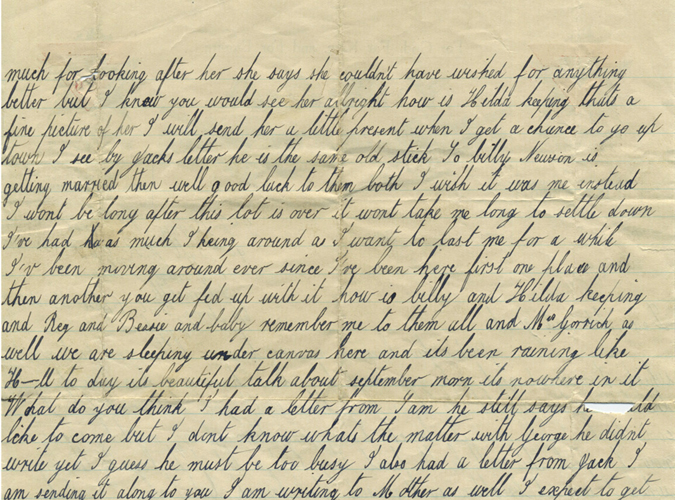 much for looking after her she says she couldn't have wished for anything
better but I knew you would see her allright how is Hilda keeping thats a
fine picture of her I will send her a little present when I get a chance to go up
town I see by Jacks letter he is the same old stick So billy Newson is
getting married then well good luck to them both I wish it was me instead
I wont be long after this lot is over it wont take me long to settle down
I've had as much being around as I want to last me for a while
I'v been moving around ever since I've been here first one place and
then another you get fed up with it how is billy and Hilda keeping
and Reg and Bessie and baby remember me to them all and Mrs as
well we are sleeping under canvas here and its been raining like
H-ll to day its beautiful talk about september morn its nowhere in it
What do you think I had a letter from he still says he
like to come but I dont know whats the matter with George he didnt
write yet I guess he must be too busy I also had a letter from Jack I
am sending it along to you I am writing to Mother as well I expect to get